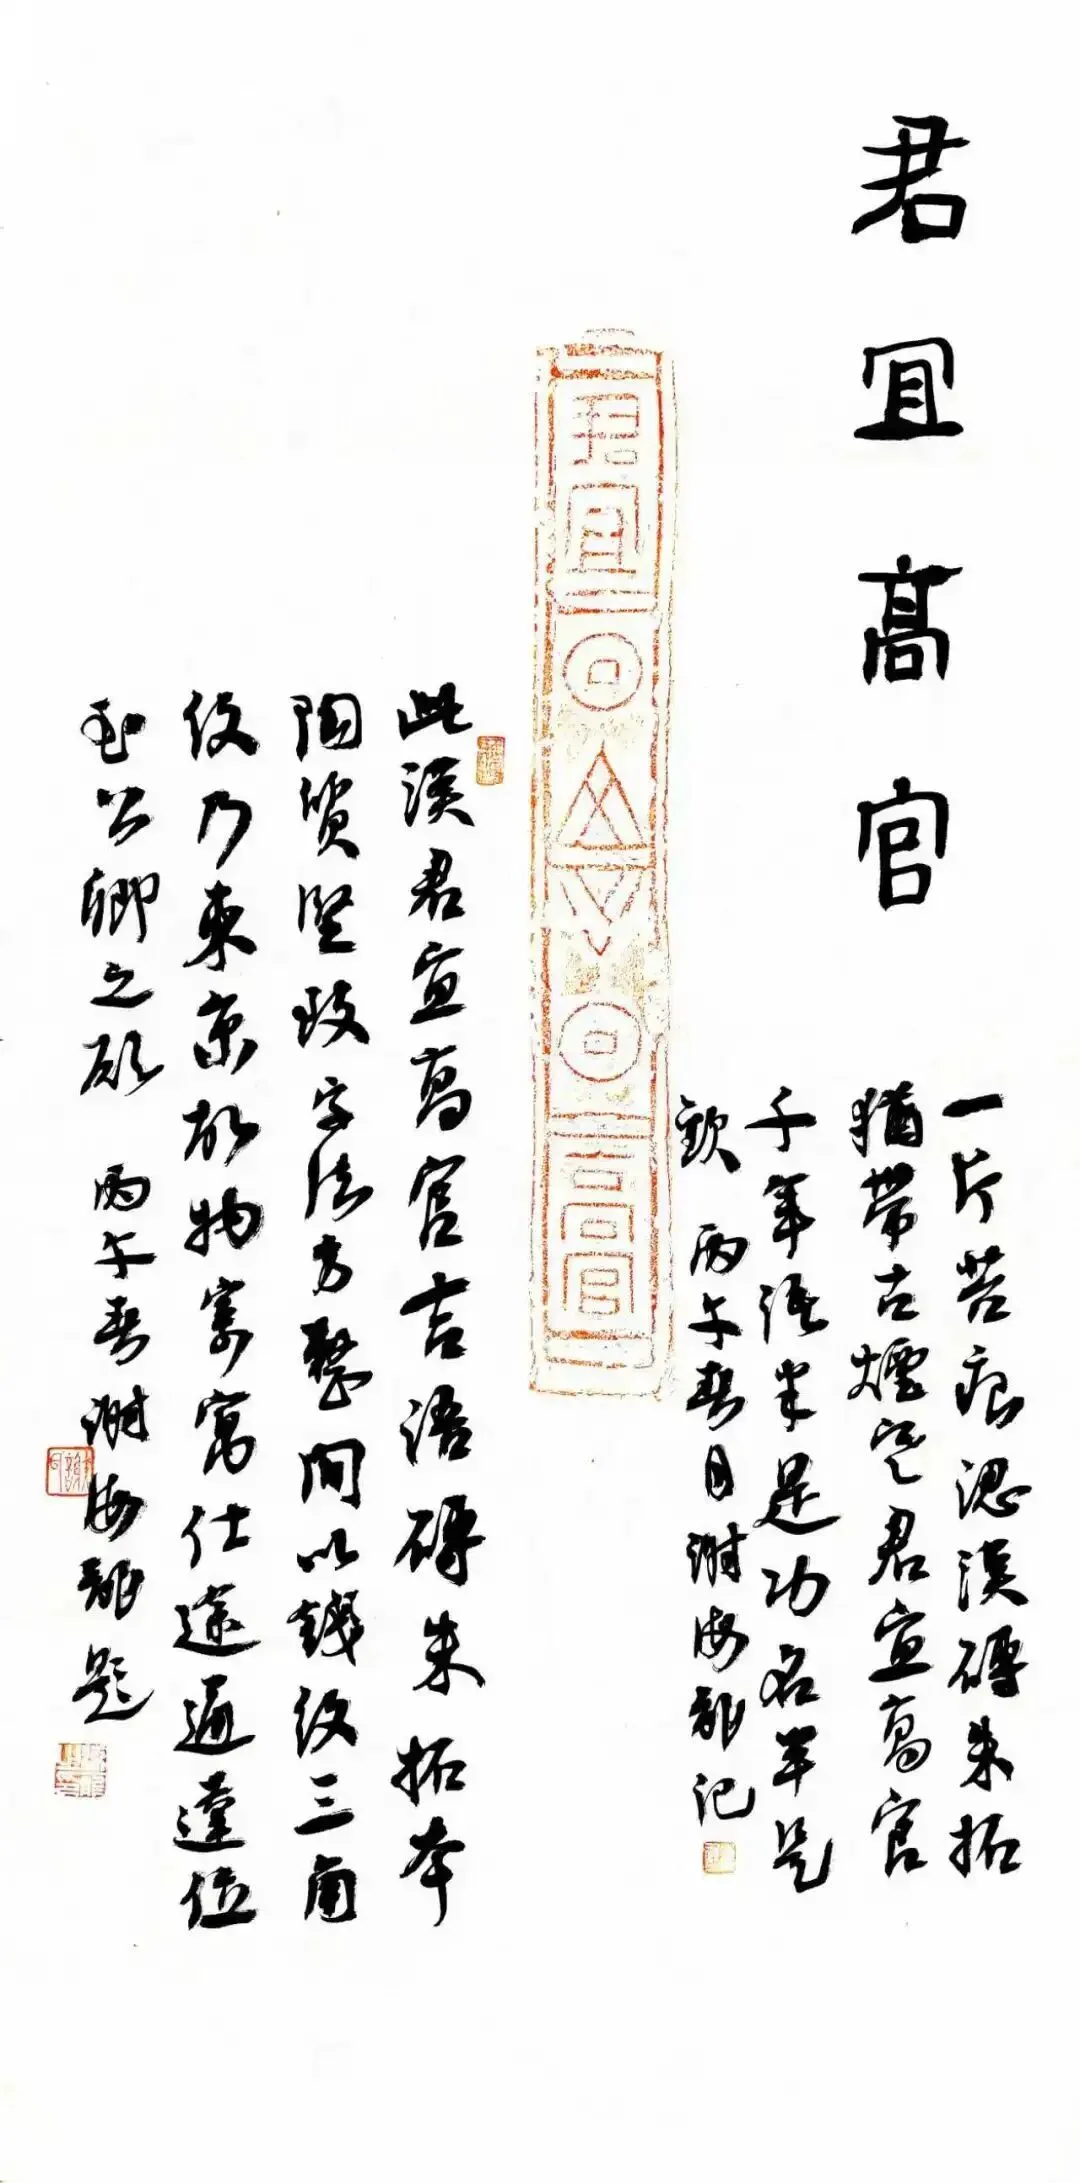 君宜高官
一片苔痕認漢磚朱拓
猶帶古煙寒君宜高官
千年語半是功名半是
歎 丙午春月謝海龍記
君宜
高官
此漢君宜高官吉語磚朱拓本
陶質堅致字法方整間以錢紋三角
紋乃東京故物寄寓仕途通達位
至公卿之願 丙午春謝海龍題